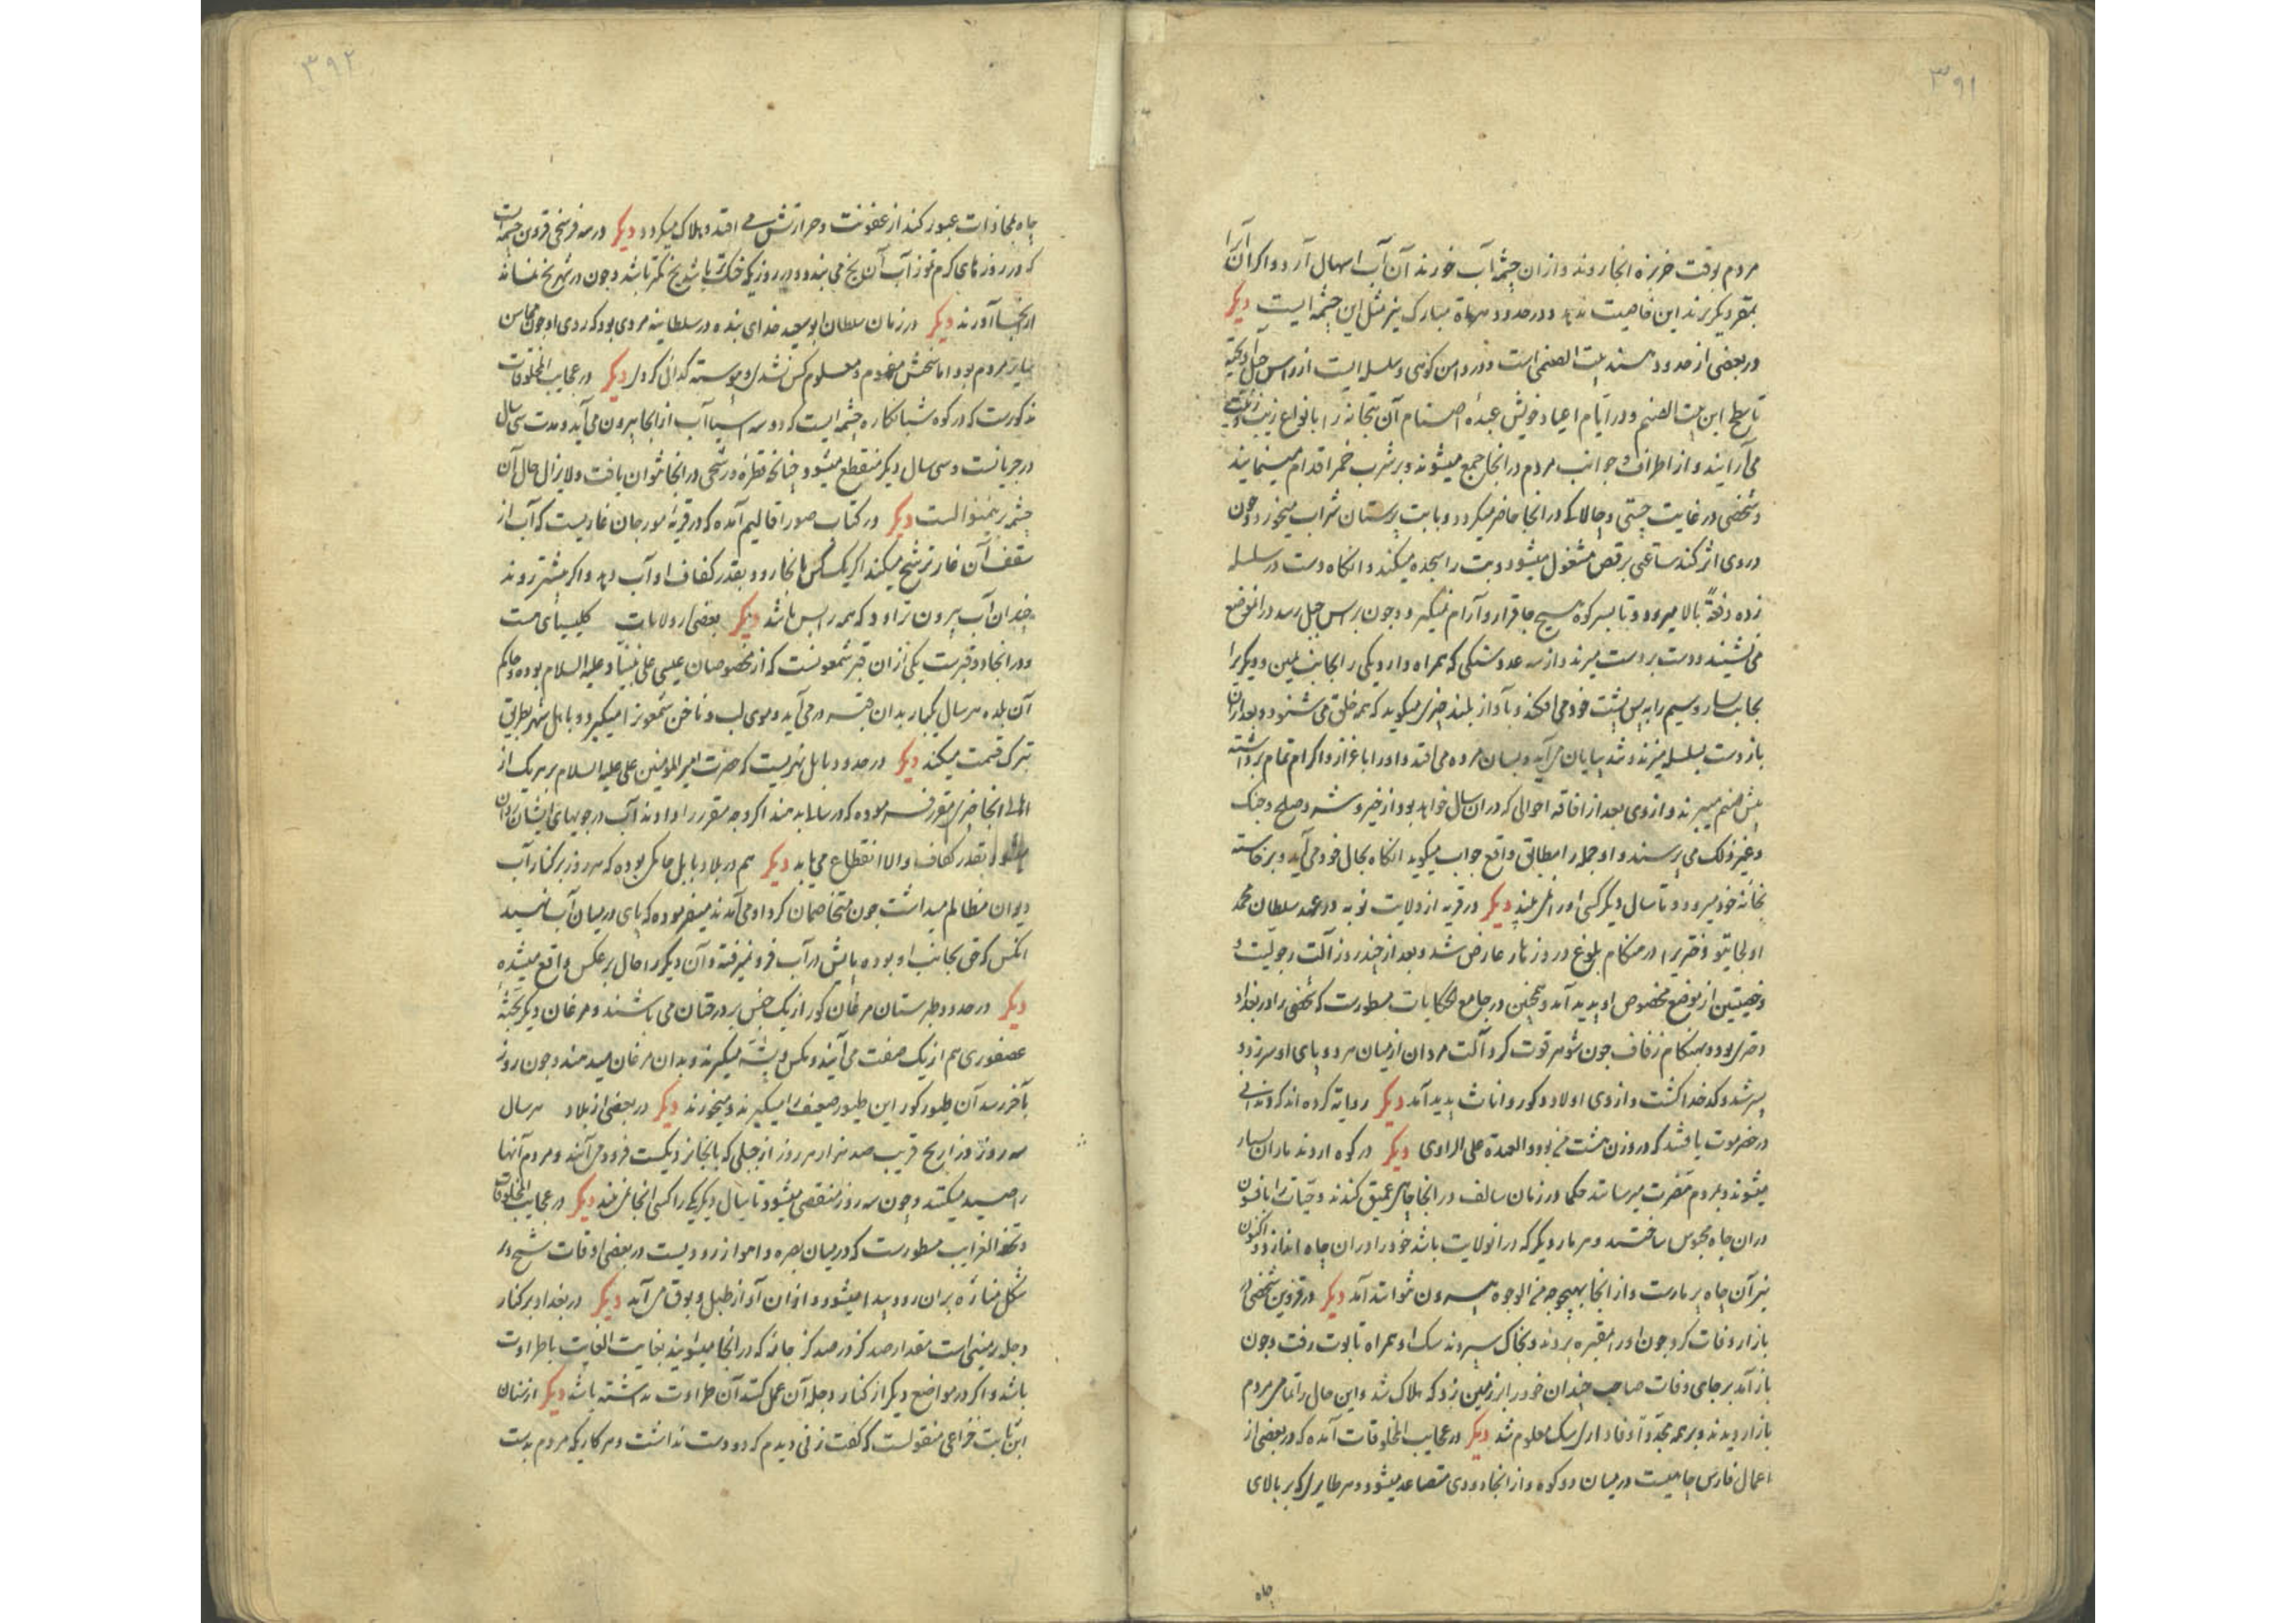 ۳۹۱
مردم بوقت خربزه انجا روند و ازان چشمه آب خورند آن آب اسهال آرد و اکر آن آبرا
بمقر دیکر برند این خاصیت ندهد و در حدود مبارک نیز مثل این چشمه ایست دیکر
در بعضی از حدود هند بیت الصنمی است و در دامن کوهی و سلسله ایست از راس جبل آویخته
تا سطح این بیت الصنم و در ایام اعیاد خویش عبده اصنام آن بتخانه را بانواع زیب و زینت
می آرایند و از اطراف و جوانب مردم در انجا جمع میشوند و بر شرب خمر اقدام مینمایند
و شخصی در غایت چستی و چالاکی در انجا حاضر میکردد و با بت پرستان شراب میخورد و چون
در وی اثر کند ساعتی برقص مشغول میشود و بت را سجده میکند و انکاه دست در سلسله
زده دفعةً بالا میرود و تا بسر کوه هیچ جا قرار و آرام نمیکیرد و چون براس جبل رسد در انموضع
می نشیند و دست بر دست میزند و از سه عدد سنکی که همراه دارد یکی را بجانب یمین و دیکریرا
بجانب یسار و سیم را به پس پشت خود می افکند و بآواز بلند چیزی میکوید که همه خلق می شنود و بعد ازان
باز دست بسلسله میزند و شد بپایان می آید و بسان مرده می افتد و او را با عزاز و اکرام تمام برداشته
پیش صنم میبرند و از وی بعد از افاقه احوالی که در ان سال خواهد بود از خیر و شر و صلح و جنک
و غیر ذلک می پرسند و او جمله را مطابق واقع جواب میکوید انکاه بحال خود می آید و برخاسته
بخانه خود میرود و تا سال دیکر کسی او را نمی بیند دیکر در قریه از ولایت نوبه در عهد سلطان محمد
اولجایتو دختریرا در هنکام بلوغ درد زهار عارض شد و بعد از چند روز آلت رجولیت و
خصیتین از موضع مخصوص او پدید آمد و همچنین در جامع الحکایات مسطورست که شخصی را در بغداد
دختری بود و بهنکام زفاف چون شوهر قوت کرد آلت مردان از میان هر دو پای او سر زد و
پسر شد و کدخدا کشت و از وی اولاد ذکور و اناث پدید آمد دیکر روایة کرده اند که دندانی
در حضرموت یافتند که در وزن هشت من بود و العهدة علی الراوی دیکر در کوه اروند ماران بسیار
میشوند و بمردم مضرت میرسانند حکما در زمان سالف در انجا چاهی عمیق کندند و حیات را بافسون
دران چاه محبوس ساختند و هر مار دیکر که در انولایت باشد خود را دران چاه اندازد و اکنون
نیز آن چاه پر مارست و از انجا بهیچوجه من الوجوه بیرون نتوانند آمد دیکر در قزوین شخصی در
بازار وفات کرد چون او را بمقبره بردند و بخاک سپردند سک او همراه تابوت رفت و چون
باز آمد بر جای وفات صاحب چندان خود را بر زمین زد که هلاک شد و این حال را تمامی مردم
بازار دیدند و بر همه وفاداری سک معلوم شد دیکر در عجایب المخلوقات آمده که در بعضی از
اعمال فارس چاهیست در میان دو کوه و از انجا دودی متصاعد میشود و هر طایری که بر بالای
چاه
۳۹۲
چاه بمحاذات عبور کند از عفونت و حرارتش می افتد و هلاک میکردد دیکر در سه فرسخی قزوین چشمه ایست
که در روزهای کرم تموز آب آن یخ می بندد و در روزیکه خنک تر باشد یخ کمتر باشد و چون در شهر یخ نماند
از انجا آورند دیکر در زمان سلطان ابو سعید خدای بنده در سلطانیه مردی بود که روی او چون محاسن
سایر مردم بود اما سخنش مفهوم و معلوم کس نشدی و پیوسته کدائی کردی دیکر در عجایب المخلوقات
مذکورست که در کوه شبانکاره چشمه ایست که دو سه اسیا آب از انجا بیرون می آید و مدت سی سال
در جریانست و سی سال دیکر منقطع میشود چنانکه قطرهٔ و رشحی در انجا نتوان یافت و لایزال حال آن
چشمه برینمنوالست دیکر در کتاب صور اقالیم آمده که در قریه مورجان غاریست که آب از
سقف آن غار ترشح میکند اکر یک کس بانجا رود بقدر کفاف او آب دهد و اکر بیشتر روند
چندان آب بیرون تراود که همه را بس باشد دیکر بعضی از ولایات کلیسیائی هست
و در انجا دو قبرست یکی ازان قبر شمعونست که از مخصوصان عیسی علی نبینا و علیه السلام بوده و حاکم
آن بلده هر سال یکبار بدان قبه در می آید و موی لب و ناخن شمعونرا میکیرد و با اهل شهر بطریق
تبرک قسمت میکند دیکر در حدود بابل نهریست که حضرت امیر المومنین علی علیه السلام بر هر یک از
اهل انجا چیزی مقرر فرموده که در سال بدهند اکر وجه مقرر را دادند آب در جویهای ایشان روان
میشود بقدر کفاف و الا انقطاع می یابد دیکر هم در بلاد بابل حاکمی بوده که هر روز بر کنار آب
دیوان مظالم میداشت چون متخاصمان کرد او می آمدند میفرموده که پای در میان آب نهید
انکس که حق بجانب او بوده پایش در آب فرو نمیرفته و آن دیکر را حال بر عکس واقع میشده
دیکر در حدود طبرستان مرغان کور از یک جنس بر درختان می باشند و مرغان دیکر بجثه
عصفوری هم از یک صفت می آیند و مکس و پشه میکیرند و بدان مرغان میدهند و چون روز
بآخر رسد آن طیور کور این طیور ضعیف را میکیرند و میخورند دیکر در بعضی از بلاد هر سال
سه روز دز اریح قریب صد هزار هر روز از جبلی که بانجا نزدیکست فرود می آیند و مردم آنها
را صید میکنند و چون سه روز منقضی میشود تا سال دیکر یکی را کسی انجا نمی بیند دیکر در عجایب المخلوقات
و تحفة الغرایب مسطورست که در میان بصره و اهواز رودیست در بعضی اوقات شبحی در
شکل منارهٔ بران رود پیدا میشود و ازان آواز طبل و بوق می آید دیکر در بغداد بر کنار
دجله زمینی است مقدار صد کز در صد کز جامه که در انجا میشویند بغایت الغایت با طراوت
باشد و اکر در مواضع دیکر از کنار دجله آن عمل کنند آن طراوت نداشته باشد دیکر از سنان
ابن ثابت خزاعی منقولست که کفت زنی دیدم که دو دست نداشت و هر کاریکه مردم بدست